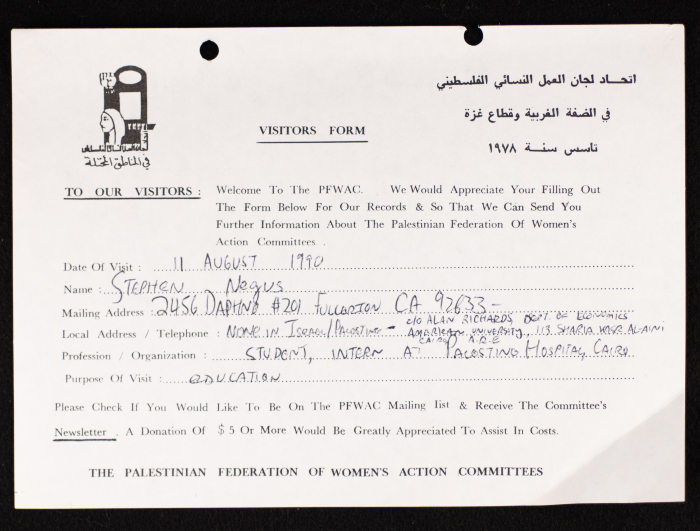 اتحاد لجان العمل النسائي الفلسطيني
في الضفة الغربية وقطاع غزة
تاسس سنة ١٩٧٨
في المناطق المحتلة
VISITORS FORM
TO OUR VISITORS : Welcome To The PFWAC. We Would Appreciate Your Filling Out
The Form Below For Our Records & So That We Can Send You
Further Information About The Palestinian Federation Of Women's
Action Committees .
Date Of Visit : 11 AUGUST 1990
Name : STEPHEN Negus
Mailing Address : 2456 DAPHNE #201 FULLERTON CA 92633-
Local Address / Telephone : NONE IN ISRAEL/PALESTINE - c/o ALAN RICHARDS DEPT. OF ECONOMICS
AMERICAN UNIVERSITY, 113 SHARIA KASR AL-AINI
CAIRO A.R.E
Profession / Organization : STUDENT, INTERN AT PALESTINE HOSPITAL, CAIRO
Purpose Of Visit : EDUCATION
Please Check If You Would Like To Be On The PFWAC Mailing list & Receive The Committee's
Newsletter . A Donation Of $ 5 Or More Would Be Greatly Appreciated To Assist In Costs.
THE PALESTINIAN FEDERATION OF WOMEN'S ACTION COMMITTEES